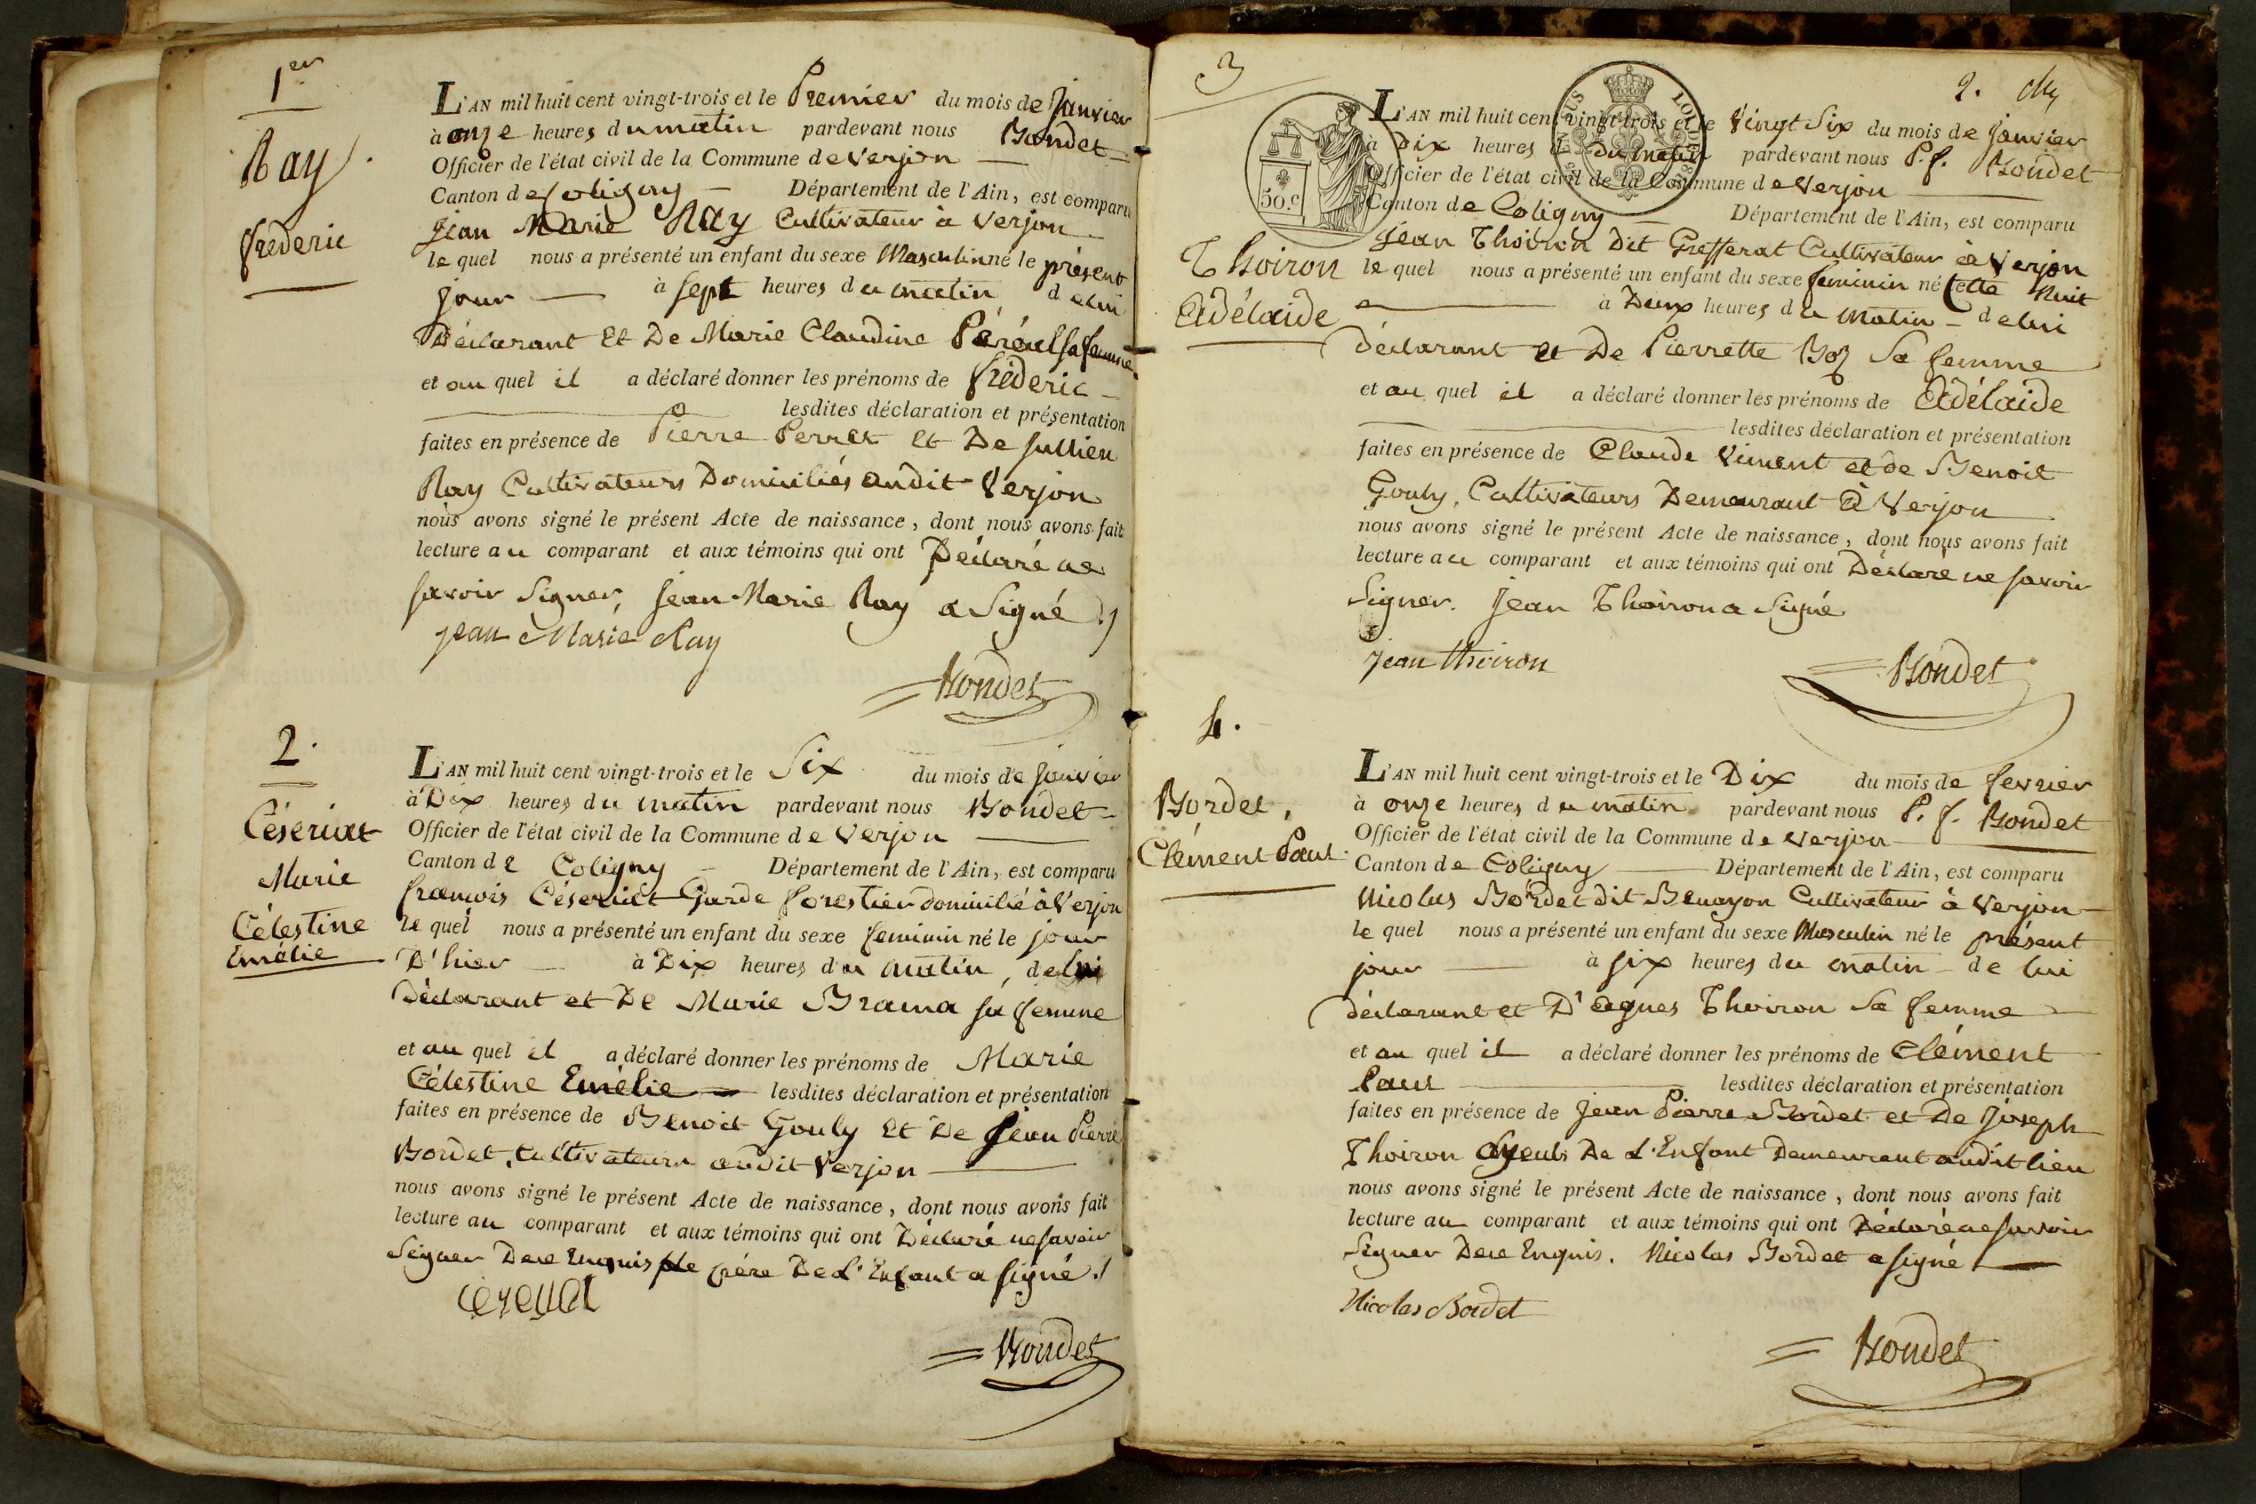 1er
Ray
frederic
L'AN mil huit cent vingt-trois et le Premier du mois de Janvier
à onze heures du matin pardevant nous Bondet
Officier de l'état civil de la Commune de Verjon
Canton de Coligny Département de l'Ain, est comparu
Jean Marie Ray Cultivateur à Verjon
le quel nous a présenté un enfant du sexe Masculin né le présent
jour à sept heures du matin de lui
Déclarant Et De Marie Claudine sa femme
et au quel il a déclaré donner les prénoms de fréderic
lesdites déclaration et présentation
faites en présence de Pierre Perret et De Jullien
Ray Cultivateurs Domiciliés audit Verjon
nous avons signé le présent Acte de naissance, dont nous avons fait
lecture au comparant et aux témoins qui ont Déclaré ne
savoir Signer, Jean Marie Ray a Signé
jean Marie Ray
Bondet
2.
Céseriat
Marie
Célestine
Emélie
L'AN mil huit cent vingt-trois et le Six du mois de janvier
à Dix heures du matin pardevant nous Bondet
Officier de l'état civil de la Commune de Verjon
Canton de Coligny Département de l'Ain, est comparu
francois Céseriat Garde forestier domicilié à Verjon
le quel nous a présenté un enfant du sexe feminin né le jour
D'hier à Dix heures du matin, de lui
déclarant et De Marie Brama sa femme
et au quel il a déclaré donner les prénoms de Marie
Célestine Emélie lesdites déclaration et présentation
faites en présence de Benoit Gouly Et De Jean Pierre
Bordet, Cultivateurs audit Verjon
nous avons signé le présent Acte de naissance, dont nous avons fait
lecture au comparant et aux témoins qui ont Déclaré ne savoir
Signer De ce Enquis le père De L'Enfant a signé ./
Bondet
3
2.
Thoiron
Adélaide
50.c
L'AN mil huit cent vingt-trois et le Vingt Six du mois de janvier
à Dix heures du matin pardevant nous P. f. Bondet
Officier de l'état civil de la Commune de Verjon
Canton de Coligny Département de l'Ain, est comparu
Jean Thoiron Dit Grefferat Cultivateur à Verjon
le quel nous a présenté un enfant du sexe feminin né cette Nuit
à Deux heures du matin de lui
déclarant et De Pierrette Boz Sa femme
et au quel il a déclaré donner les prénoms de Adélaide
lesdites déclaration et présentation
faites en présence de Claude Viment et de Benoit
Gouly, Cultivateurs Demeurant à Verjon
nous avons signé le présent Acte de naissance, dont nous avons fait
lecture au comparant et aux témoins qui ont Déclaré ne savoir
Signer. Jean Thoiron a Signé
jean thoiron
Bondet
4.
Bordet,
Clément Paul
L'AN mil huit cent vingt-trois et le Dix du mois de fevrier
à onze heures du matin pardevant nous P. f. Bondet
Officier de l'état civil de la Commune de Verjon
Canton de Coligny Département de l'Ain, est comparu
Nicolas Bordet dit Benayon Cultivateur à Verjon
le quel nous a présenté un enfant du sexe Masculin né le présent
jour à six heures du matin de lui
déclarant et D'agnes Thoiron Sa femme
et au quel il a déclaré donner les prénoms de Clément
Paul lesdites déclaration et présentation
faites en présence de Jean Pierre Bordet et De Joseph
Thoiron Ayeuls De L'Enfant Demeurant audit lieu
nous avons signé le présent Acte de naissance, dont nous avons fait
lecture au comparant et aux témoins qui ont Déclaré ne savoir
Signer De ce Enquis. Nicolas Bordet a signé
Nicolas Bordet
Bondet